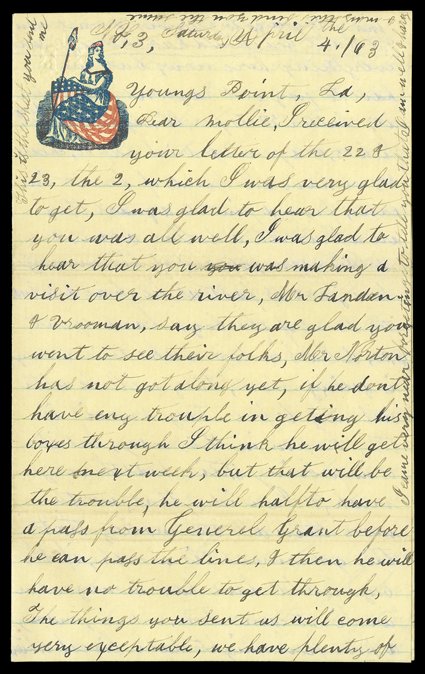 No, 3, Saturday April the 4, /63
Youngs Point, La,
Dear Mollie, I received
your letter of the 22 &
23, the 2, which I was very glad
to get, I was glad to hear that
you was all well, I was glad to
hear that you you was making a
visit over the river, Mr Landen
& Vrooman, say they are glad you
went to see their folks, Mr Norton
has not got along yet, if he dont
have eny trouple in geting his
boxes through I think he will get
here next week, but that will be
the trouble, he will halfto have
a pass from General Grant before
he can pass the lines, & then he will
have no trouble to get through,
The things you sent us will come
very exceptable, we have plenty of
This is the sheet you sent
me
I must send you the same
I came very near forgeting to tell you that I am well